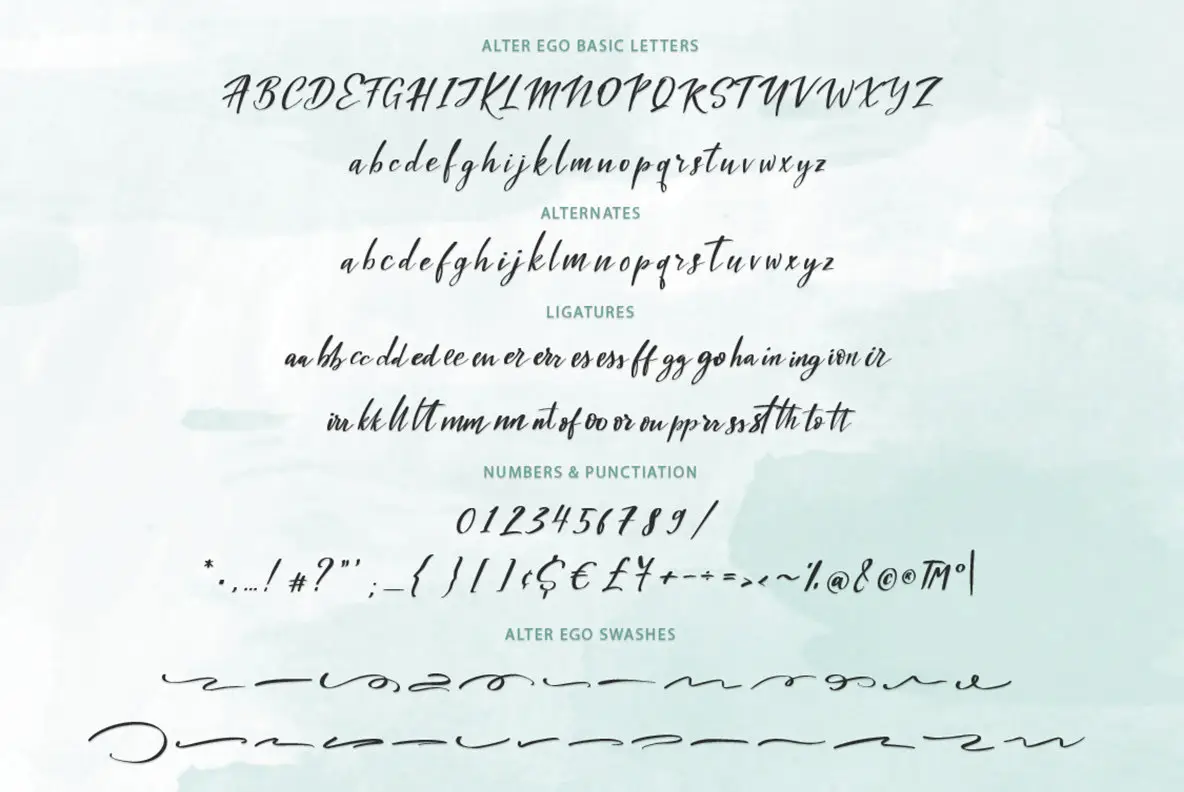 ALTER EGO BASIC LETTERS
ABCDEFGHIJKLMNOPQRSTUVWXYZ
abcdefghijklmnopqrstuvwxyz
ALTERNATES
abcdefghijklmnopqrstuvwxyz
LIGATURES
aa bb cc dd ed ee en er err es ess ff gg go ha in ing ion ir
irr kk ll lt mm nn nt of oo or ou pp rr ss st th to tt
NUMBERS & PUNCTIATION
0123456789/
*·,...!#?"';_{}[]¢$€£¥+-÷=><~%@&©®™°|
ALTER EGO SWASHES